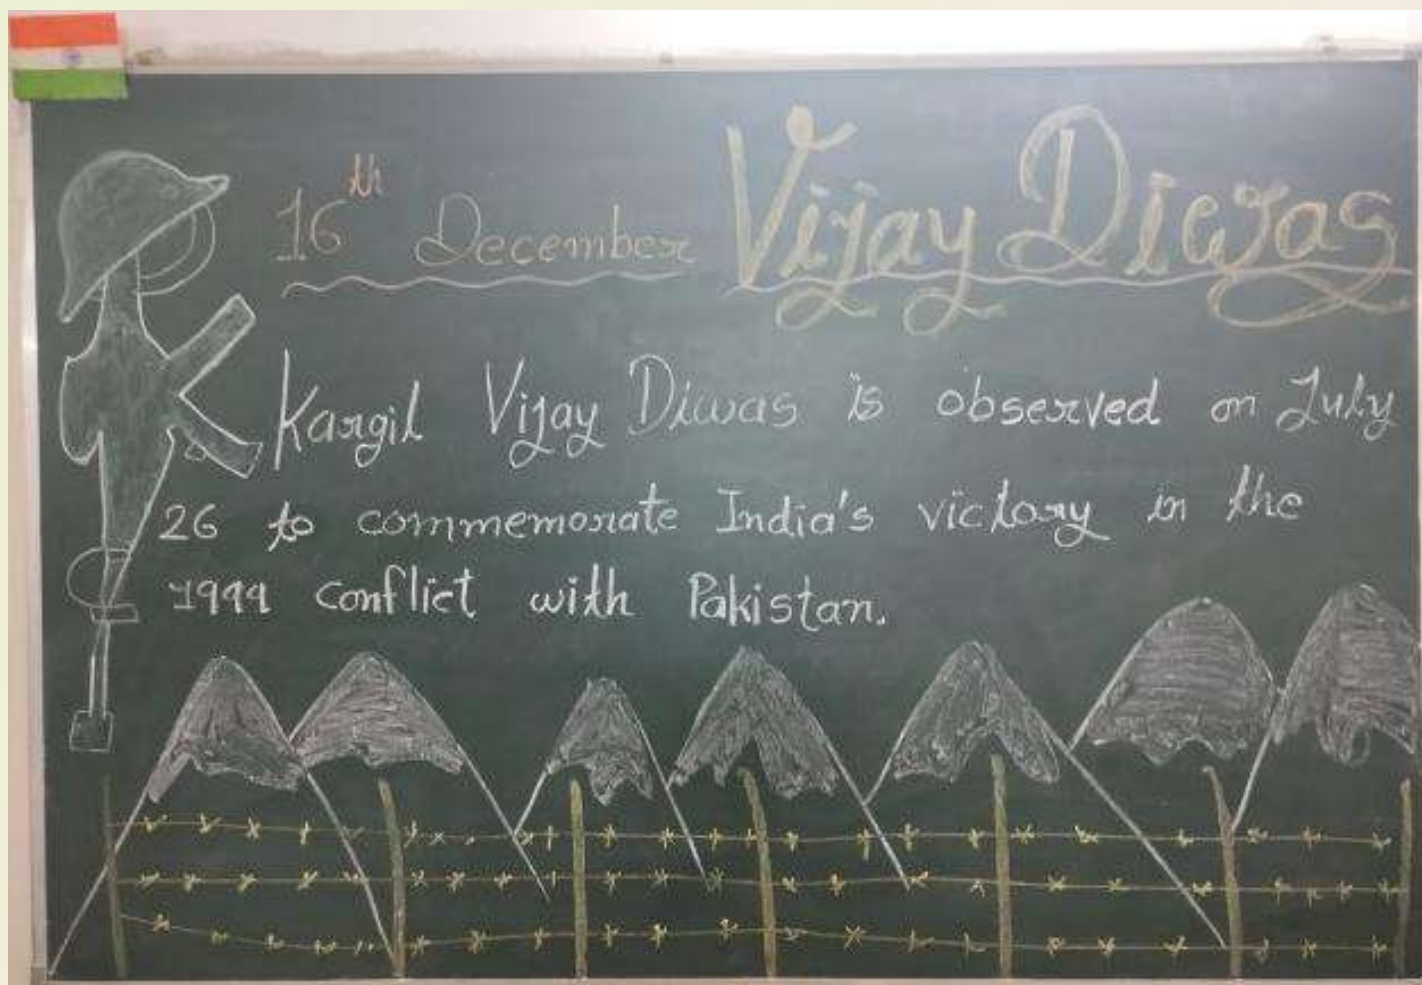 16th December Vijay Diwas
Kargil Vijay Diwas is observed on July
26 to commemorate India's victory in the
1999 conflict with Pakistan.